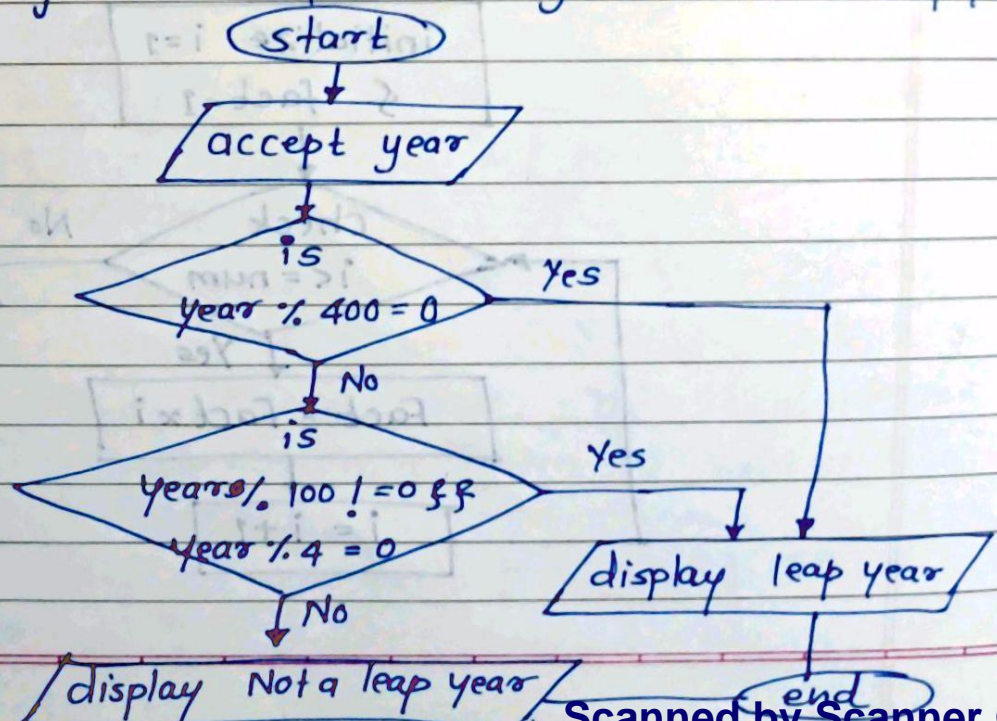 start
accept year
is
year % 400 = 0
Yes
No
is
Yes
year % 100 ! = 0 &&
year % 4 = 0
display leap year
No
display Not a leap year
end
Scanned by Scanner